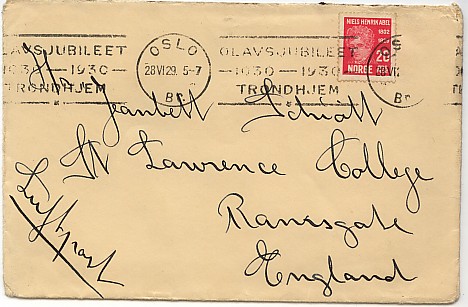 OLAVSJUBILEET
1030-1930
TRONDHJEM
OSLO
28 VI 29. 5-7
Br.
OLAVSJUBILEET
1030-1930
TRONDHJEM
NIELS HENRIK ABEL
1802
20
NORGE
OS
Br
Jeanbett Schiött
St Lawrence College
Ramsgate
England
Luftpost